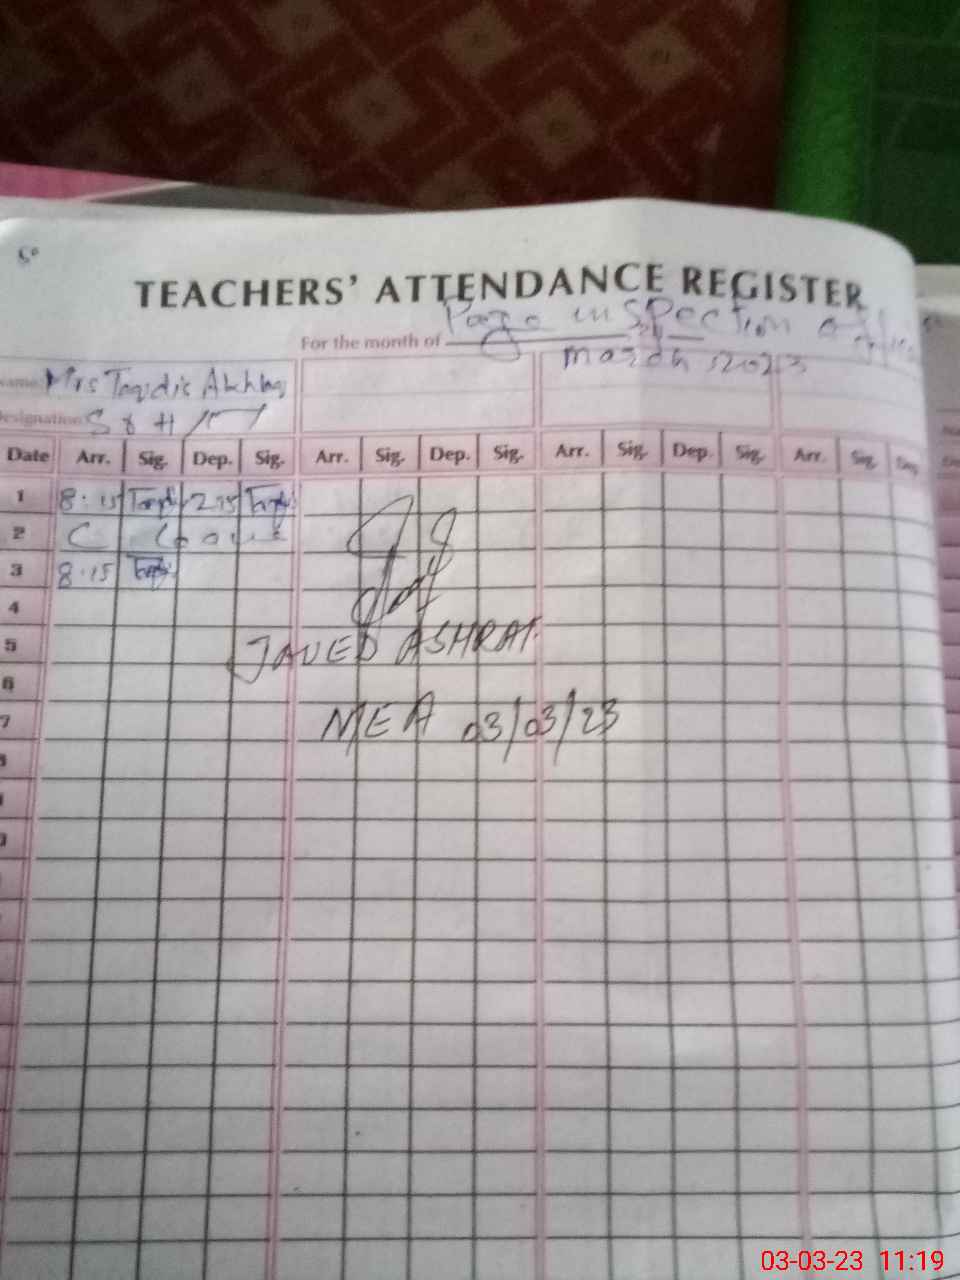 TEACHERS' ATTENDANCE REGISTER
Page inspection
For the month of
March 2023
Name: Mrs
Designation S
Date Arr. Sig. Dep. Sig. Arr. Sig. Dep. Sig. Arr. Sig. Dep. Sig. Arr. Sig. Dep.
1 8:15 2.15
2 C
3 8.15
4
5 JAVED ASHRAF
6
7 MEA 03/03/23
03-03-23 11:19